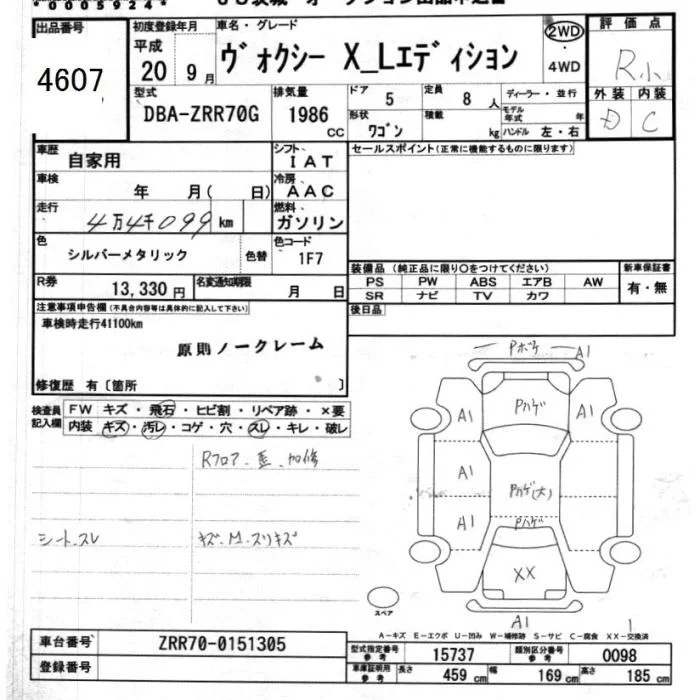 *0005924*
出品番号
4607
初度登録年月
平成
20 9月
車名・グレード
ヴォクシー X_Lエディション
2WD
4WD
評価点
R小
型式
DBA-ZRR70G
排気量
1986
CC
ドア 5
定員 8人
形状
ワゴン
積載
kg
ディーラー・並行
モデル年式 年
ハンドル 左・右
外装 内装
D C
車歴
自家用
シフト
IAT
車検
年 月( 日)
冷房
AAC
走行
4万4千099km
燃料
ガソリン
色
シルバーメタリック
色替
色コード
1F7
R券
13,330円
名変通知期限
月 日
セールスポイント(正常に機能するものに限ります)
装備品(純正品に限り○をつけてください)
新車保証書
PS PW ABS エアB AW
SR ナビ TV カワ
有・無
後日品
注意事項申告欄(不具合内容等は具体的に記入して下さい)
車検時走行41100km
原則ノークレーム
修復歴 有〔箇所 〕
検査員記入欄
FW キズ・飛石・ヒビ割・リペア跡・×要
内装 キズ・汚レ・コゲ・穴・スレ・キレ・破レ
Rフロア
加修
シートスレ
キズ
スリキズ
Pボケ
A1
A1
Pハゲ
A1
A1
Pハゲ(大)
A1
Pハゲ
XX
スペア
A1
A-キズ E-エクボ U-凹み W-補修跡 S-サビ C-腐食 XX-交換済
車台番号
ZRR70-0151305
登録番号
型式指定番号
参考
15737
類別区分番号
参考
0098
車庫証明用
参考
長さ 459cm
幅 169cm
高さ 185cm